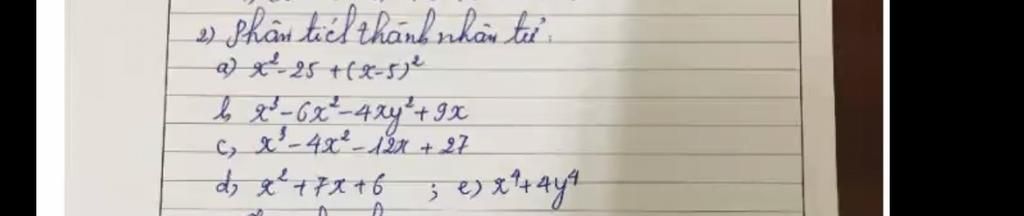 2) Phân tích thành nhân tử.
a) x² - 25 + (x-5)²
b, x³ - 6x² - 4xy² + 9x
c, x³ - 4x² - 12x + 27
d, x² + 7x + 6 ; e) x⁴ + 4y⁴